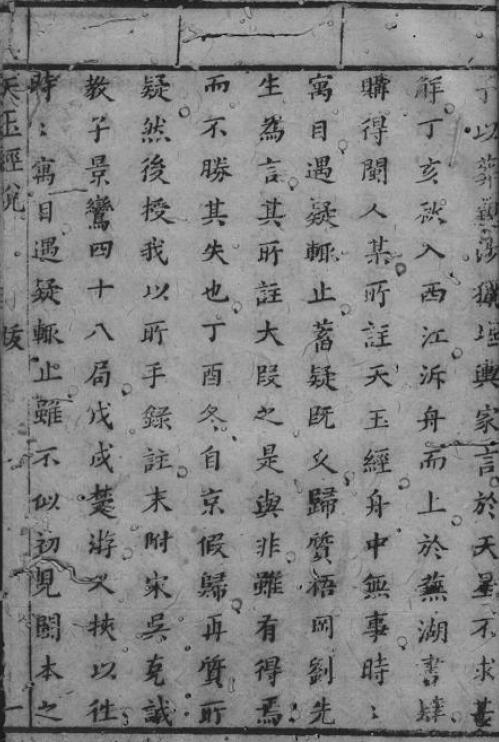 以葬觀涉獵堪輿家言於天星不求甚
解丁亥秋入西江泝舟而上於蕪湖書肆
購得閩人某所註天玉經舟中無事時〻
寓目遇疑輙止蓄疑旣久歸質梧岡劉先
生為言其所註大段之是與非雖有得焉
而不勝其失也丁酉冬自京假歸再質所
疑然後授我以所手錄註末附宋吳克誠
教子景鸞四十八局戊戌楚游又挾以往
時〻寓目遇疑輙止雖不似初見閩本之
天玉經說 跋 一